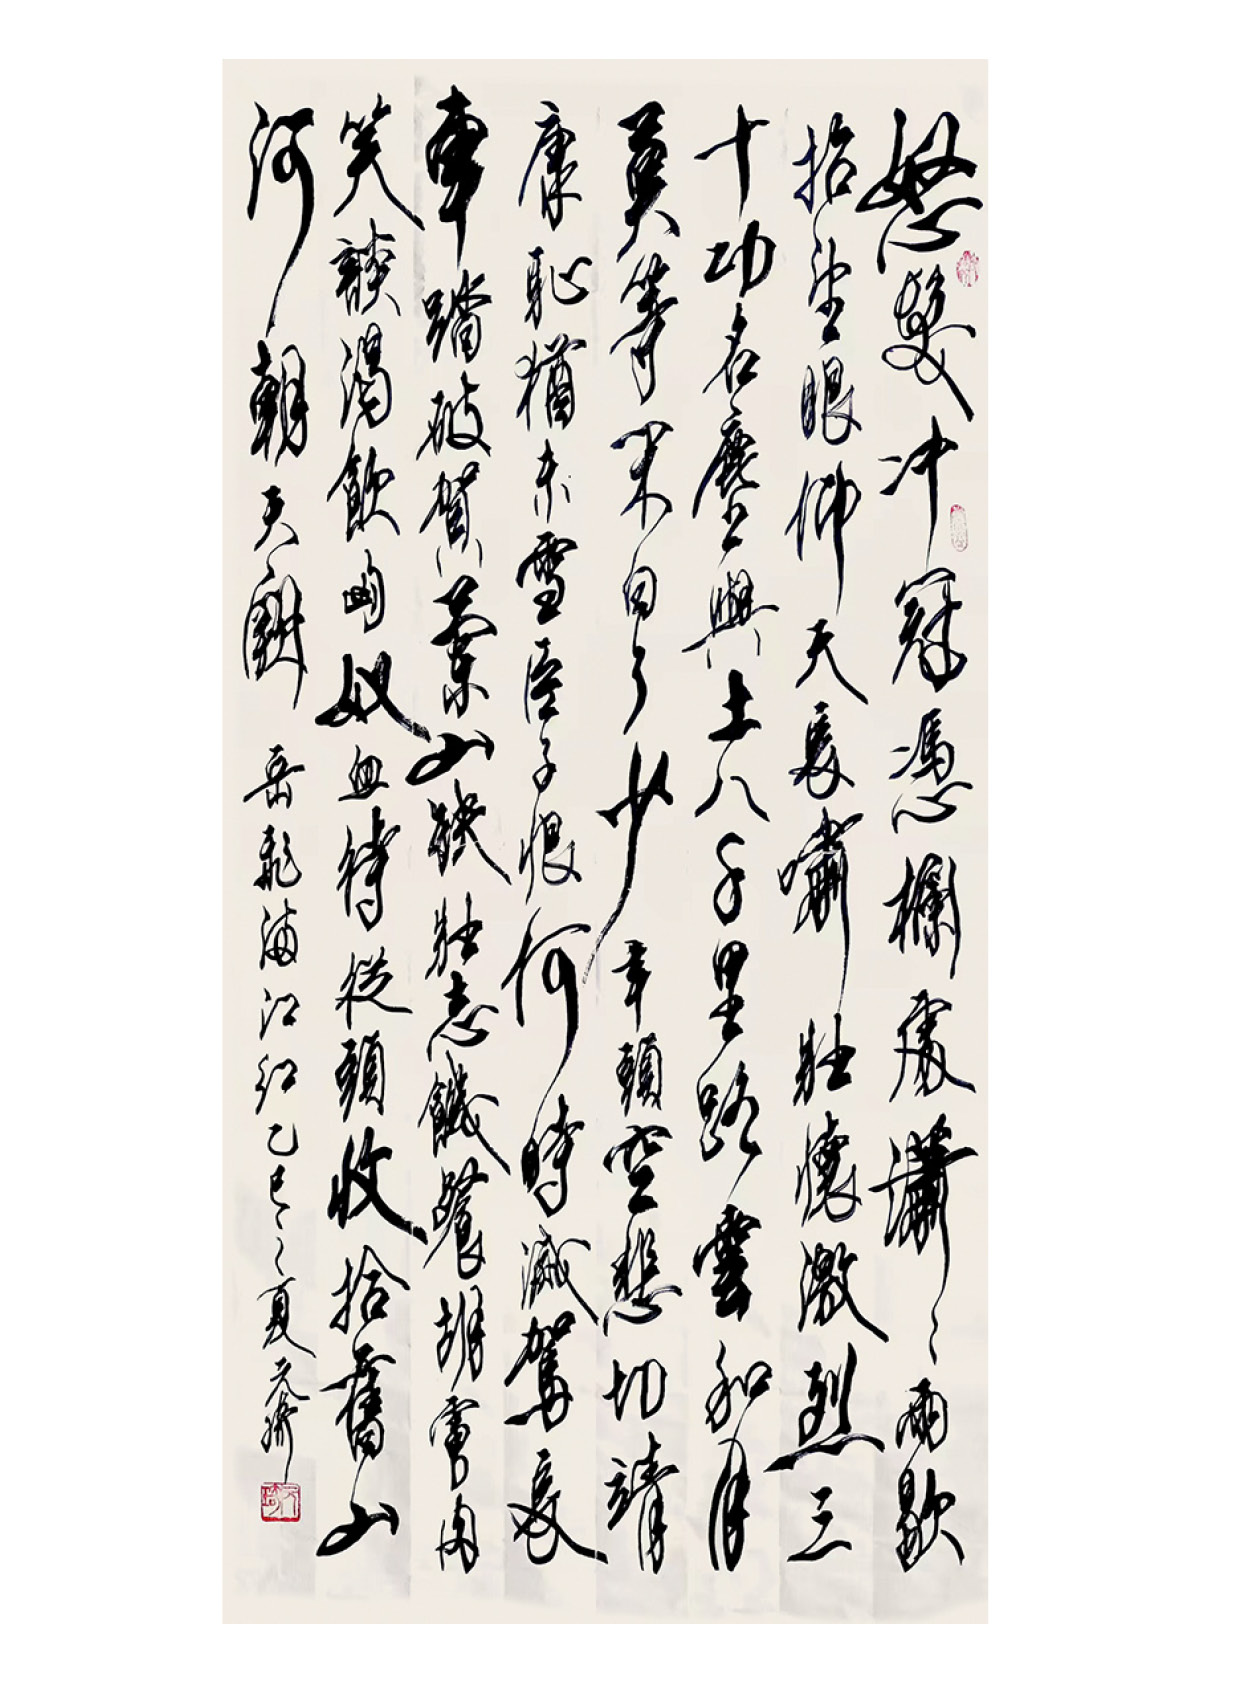 怒髮冲冠憑欄處瀟〻雨歇
抬望眼仰天長嘯壯懷激烈三
十功名塵與土八千里路雲和月
莫等閑白了少年頭空悲切靖
康恥猶未雪臣子恨何時滅駕長
車踏破賀蘭山缺壯志饑餐胡虜肉
笑談渴飲匈奴血待從頭收拾舊山
河朝天闕 岳飛滿江紅乙巳之夏元齊